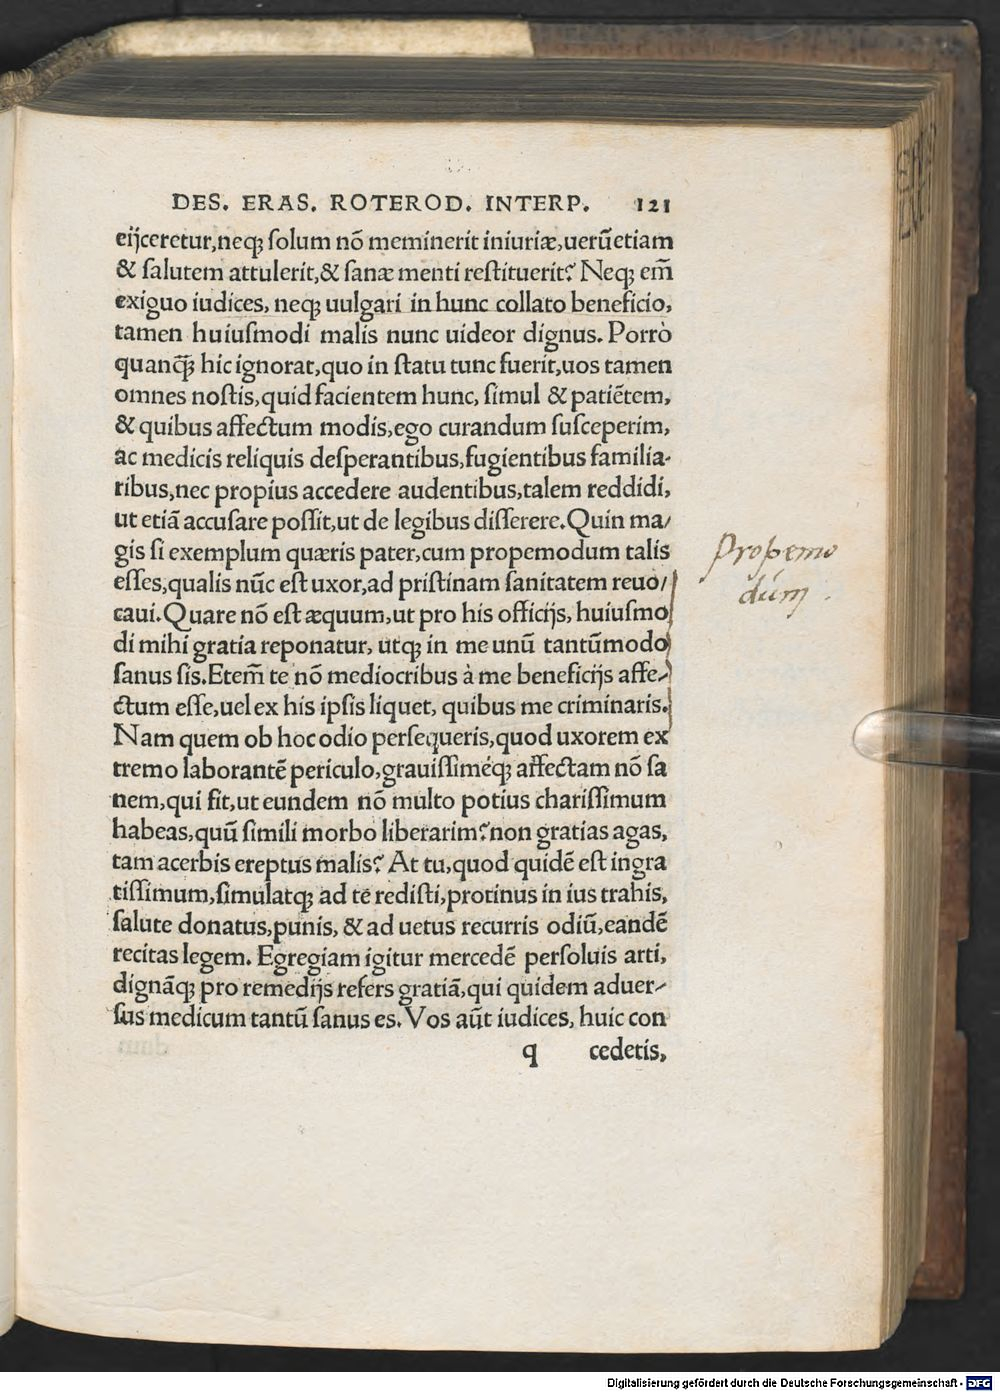 DES. ERAS. ROTEROD. INTERP. 121
eijceretur,neqꝫ ſolum nõ meminerit iniuriæ,uerũetiam
& ſalutem attulerit,& ſanæ menti reſtituerit? Neqꝫ em̃
exiguo iudices, neqꝫ uulgari in hunc collato beneficio,
tamen huiuſmodi malis nunc uideor dignus. Porrò
quanq̃ꝫ hic ignorat,quo in ſtatu tunc fuerit,uos tamen
omnes noſtis,quid facientem hunc, ſimul & patiẽtem,
& quibus affectum modis,ego curandum ſuſceperim,
ac medicis reliquis deſperantibus,fugientibus familia-
ribus,nec propius accedere audentibus,talem reddidi,
ut etiã accuſare poſſit,ut de legibus diſſerere.Quin ma/
gis ſi exemplum quæris pater,cum propemodum talis
eſſes,qualis nũc eſt uxor,ad priſtinam ſanitatem reuo/
caui.Quare nõ eſt æquum,ut pro his officijs, huiuſmo
di mihi gratia reponatur, utqꝫ in me unũ tantũmodo
ſanus ſis.Etem̃ te nõ mediocribus à me beneficijs affe/
ctum eſſe,uel ex his ipſis liquet, quibus me criminaris.
Nam quem ob hoc odio perſequeris,quod uxorem ex
tremo laborantẽ periculo,grauiſſiméqꝫ affectam nõ ſa
nem,qui fit,ut eundem nõ multo potius chariſſimum
habeas,quũ ſimili morbo liberarim?non gratias agas,
tam acerbis ereptus malis? At tu,quod quidẽ eſt ingra
tiſſimum,ſimulatqꝫ ad te rediſti,protinus in ius trahis,
ſalute donatus,punis, & ad uetus recurris odiũ,eandẽ
recitas legem. Egregiam igitur mercedẽ perſoluis arti,
dignãqꝫ pro remedijs refers gratiã,qui quidem aduer/
ſus medicum tantũ ſanus es. Vos aũt iudices, huic con
q cedetis,
Propemo
dúm.
Digitalisierung gefördert durch die Deutsche Forschungsgemeinschaft - DFG